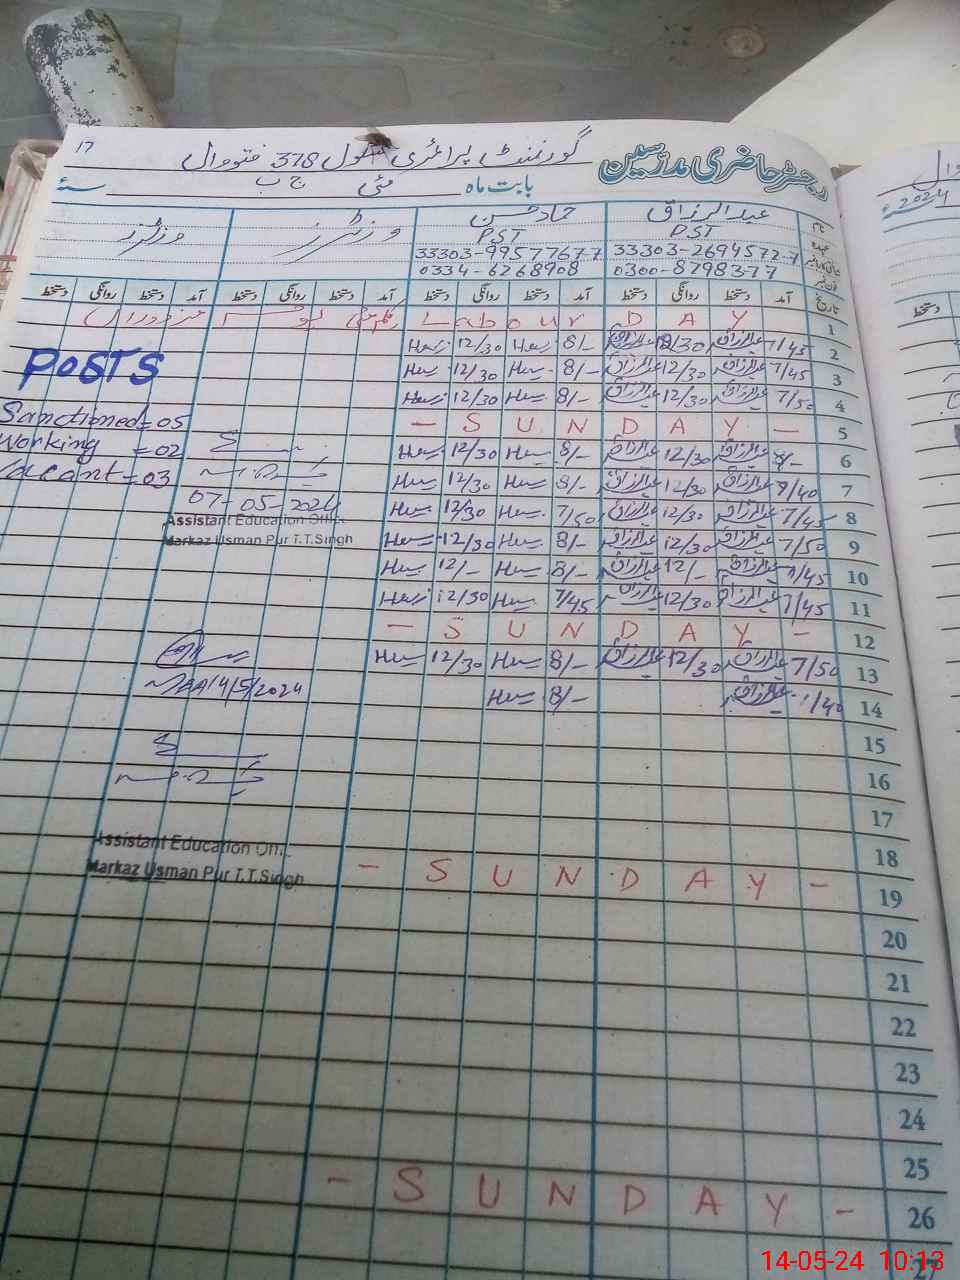 17
گورنمنٹ پرائمری سکول 378 ج ب فتووال
رجسٹر حاضری مدرسین
بابت ماہ مئی سنہ
عبدالرزاق حماد حسن وزیٹرز وزیٹرز
PST PST
33303-2694572-7 33303-9957767-7
0300-8798377 0334-6268908
تاریخ آمد دستخط روانگی دستخط آمد دستخط روانگی دستخط آمد دستخط روانگی دستخط آمد دستخط روانگی دستخط
1 Labour DAY یکم مئی یوم مزدوراں
2 7/45 عبدالرزاق 12/30 عبدالرزاق 8/- 12/30
3 7/45 عبدالرزاق 12/30 عبدالرزاق 8/- 12/30
4 7/50 عبدالرزاق 12/30 عبدالرزاق 8/- 12/30
5 - SUNDAY -
6 8/- عبدالرزاق 12/30 عبدالرزاق 8/- 12/30
7 عبدالرزاق 12/30 عبدالرزاق 8/- 12/30
8 7/45 عبدالرزاق 12/30 عبدالرزاق 7/50 12/30
9 7/50 عبدالرزاق 12/30 عبدالرزاق 8/- 12/30
10 7/45 عبدالرزاق 12/- عبدالرزاق 8/- 12/-
11 7/45 عبدالرزاق 12/30 عبدالرزاق 7/45 12/30
12 - SUNDAY -
13 7/50 عبدالرزاق 12/30 عبدالرزاق 8/- 12/30
14 عبدالرزاق 8/-
15
16
17
18
19 - SUNDAY -
20
21
22
23
24
25
26 - SUNDAY -
27
POSTS
Sanctioned = 05
Working = 02
Vacant = 03
07-05-2024
Assistant Education Office
Markaz Usman Pur T.T.Singh
14/5/2024
Assistant Education Offi
Markaz Usman Pur T.T.Singh
2024
14-05-24 10:13